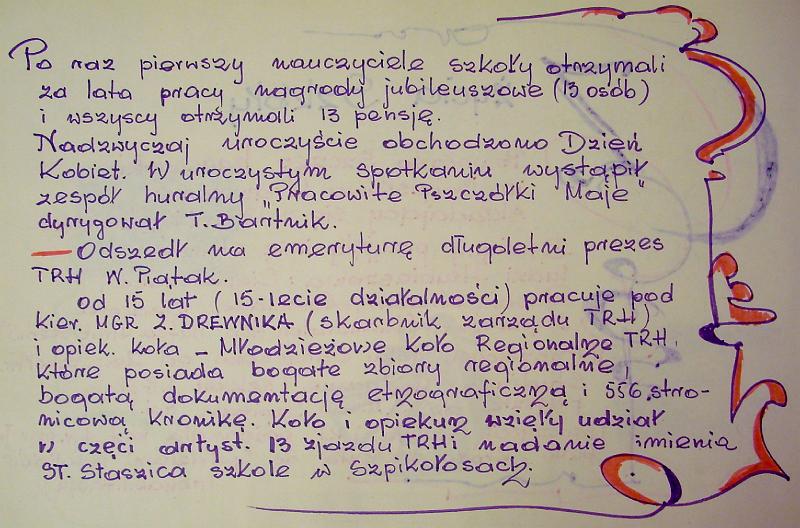 Po raz pierwszy nauczyciele szkoły otrzymali
za lata pracy nagrody jubileuszowe (13 osób)
i wszyscy otrzymali 13 pensję.
Nadzwyczaj uroczyście obchodzono Dzień
Kobiet. W uroczystym spotkaniu wystąpił
zespół huralny „Pracowite Pszczółki Maje"
dyrygował T. Bartnik.
— Odszedł na emeryturę długoletni prezes
TRH W. Piątak.
od 15 lat (15-lecie działalności) pracuje pod
kier. MGR Z. DREWNIKA (skarbnik zarządu TRH)
i opiek. koła – Młodzieżowe Koło Regionalne TRH.
które posiada bogate zbiory regionalne,
bogatą dokumentację etnograficzną i 556 stro-
nicową kronikę. Koło i opiekun wzięły udział
w częci artyst. 13 zjazdu TRH i nadanie imienia
ST. Staszica szkole w Szpikołosach.